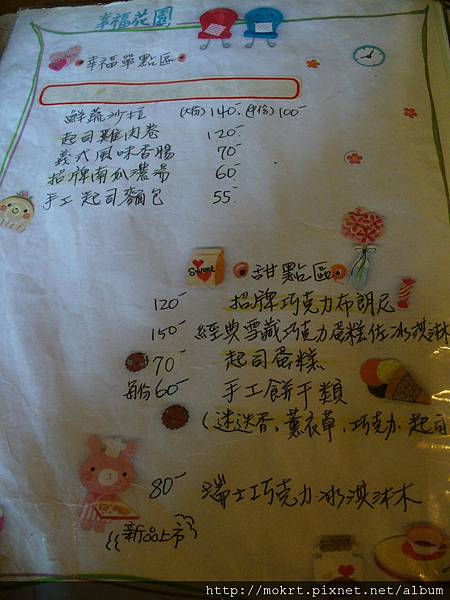 幸福花園
幸福單點區
鮮蔬沙拉 (大份) 140- (半份) 100-
起司雞肉卷 120-
義大風味香腸 70-
招牌南瓜濃湯 60-
手工起司麵包 55-
Sweet 甜點區
120- 招牌巧克力布朗尼
150- 經典雪藏巧克力蛋糕佐冰淇淋
70- 起司蛋糕
每份 60- 手工餅干類
(迷迭香, 薰衣草, 巧克力, 起司
80- 瑞士巧克力冰淇淋
新品上市
http://mokrt.pixnet.net/album